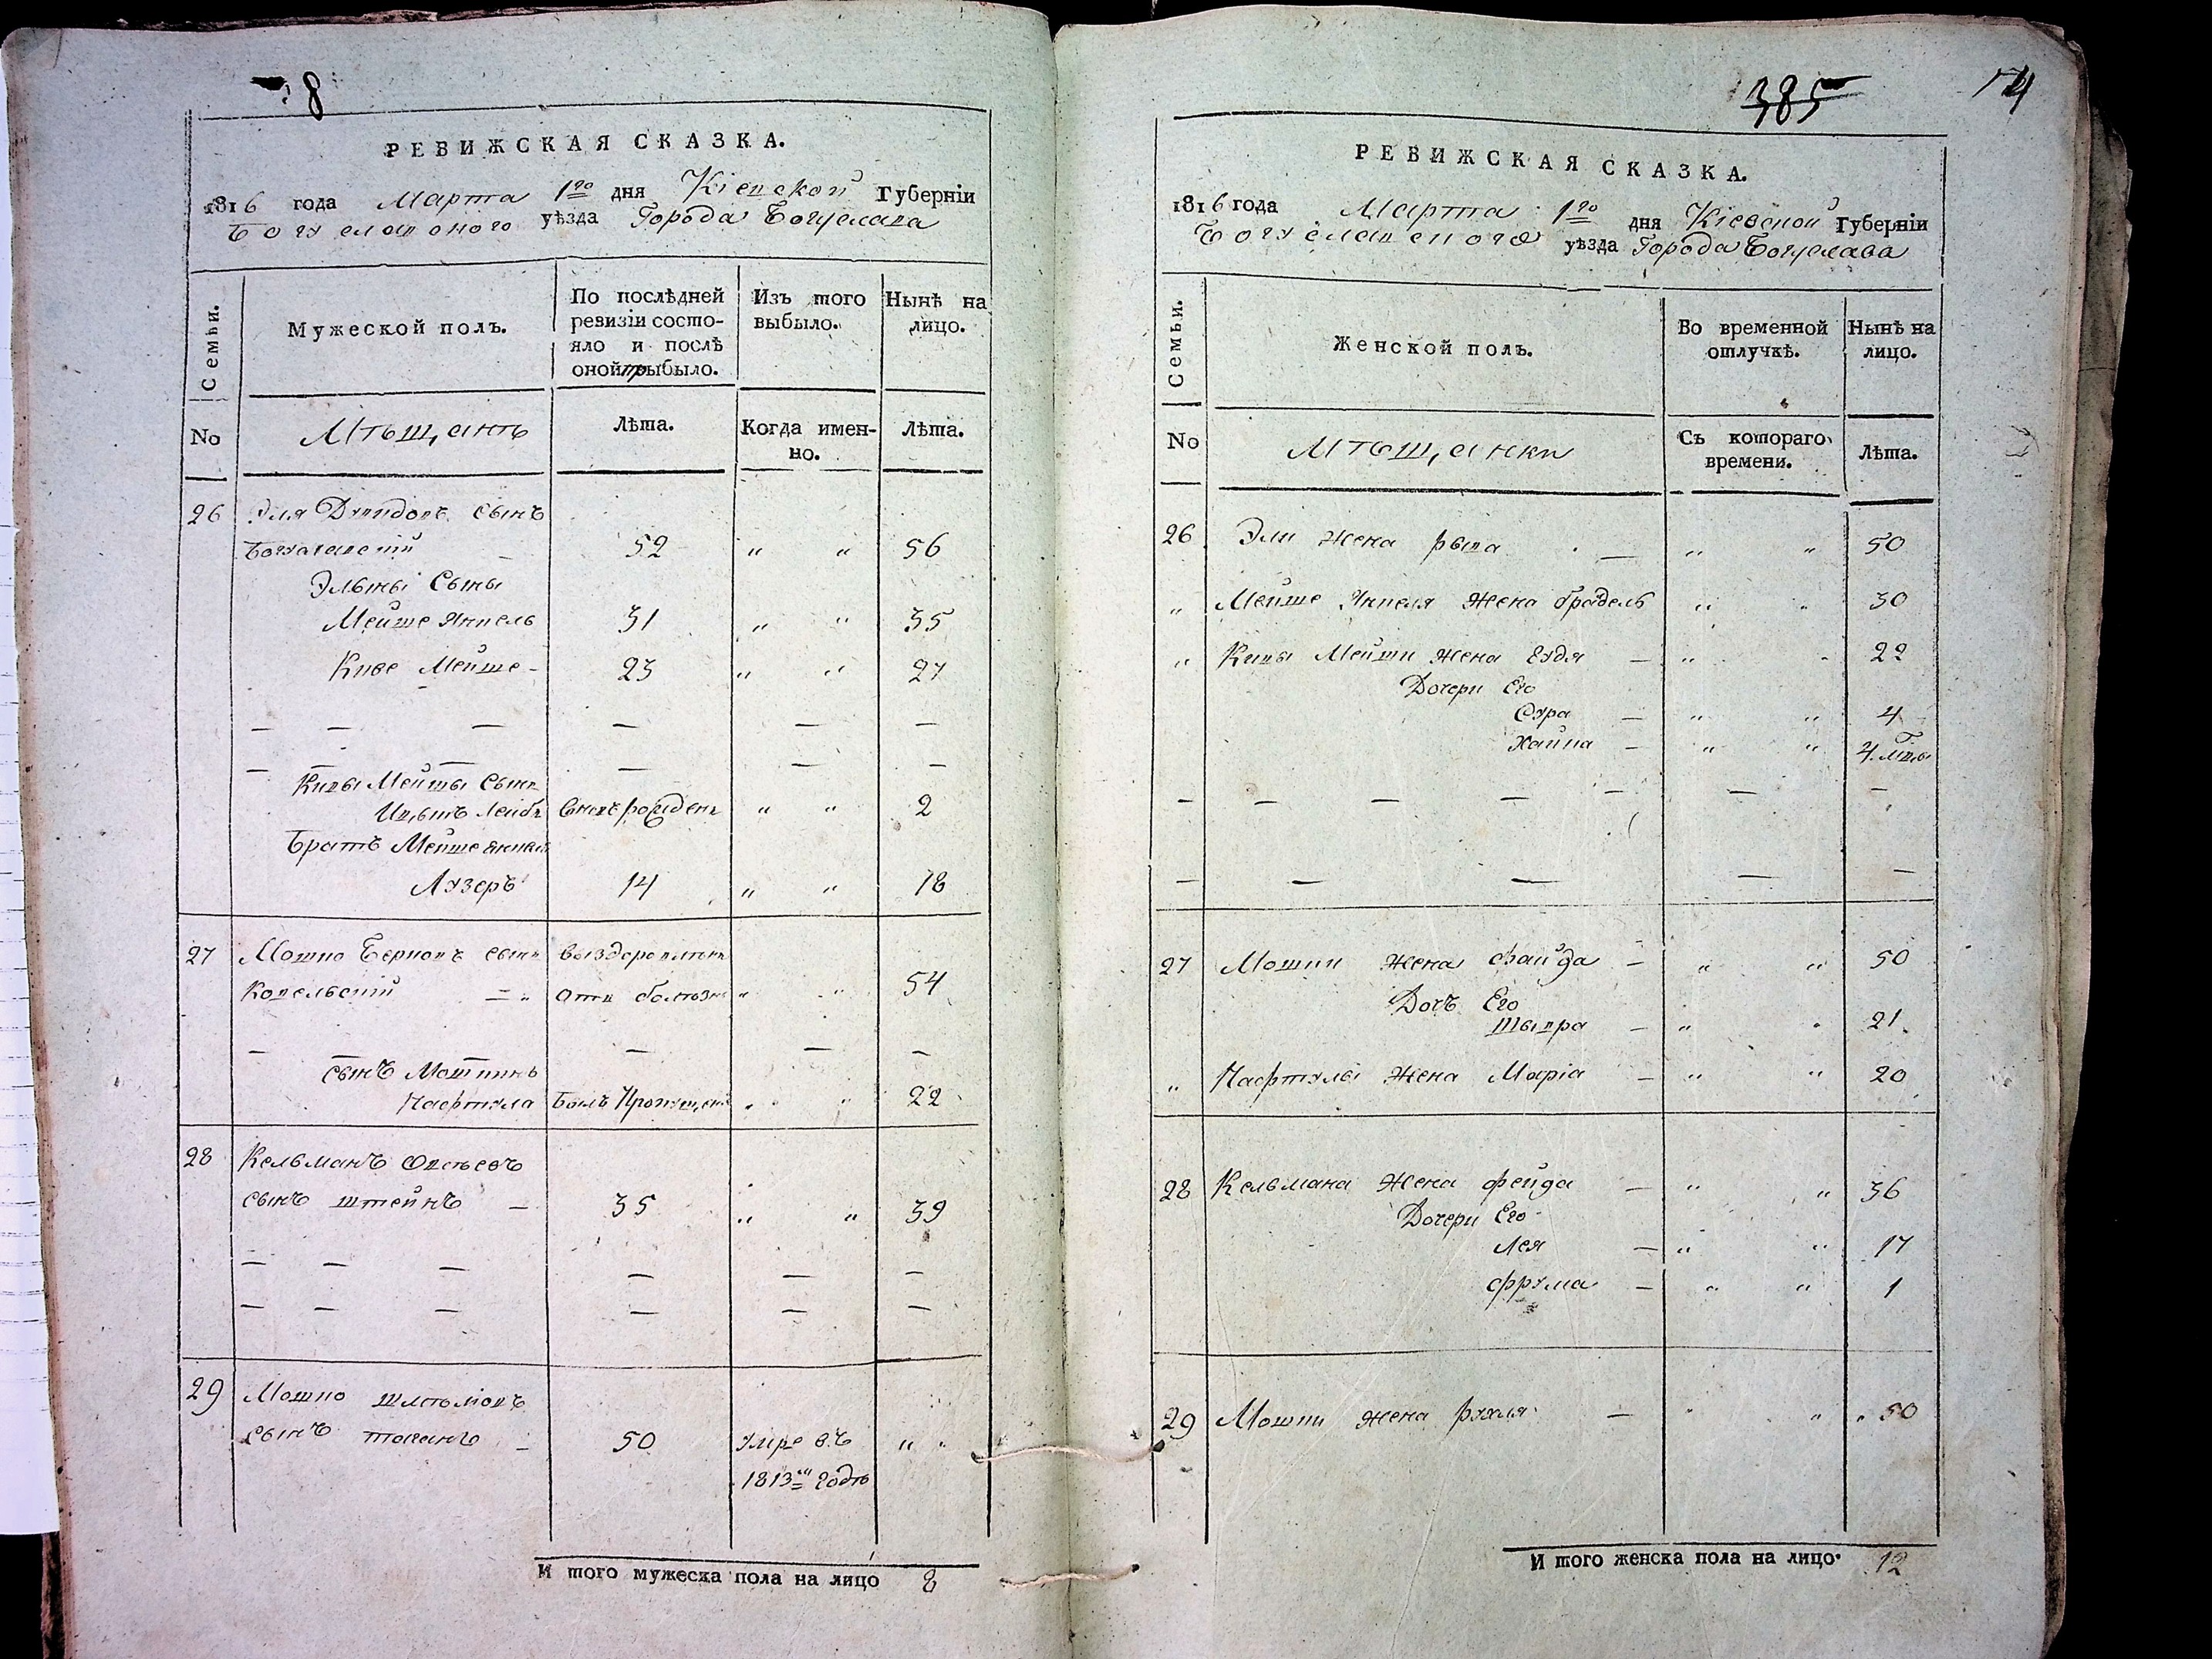 8
РЕВИЖСКАЯ СКАЗКА.
1816 года Марта 1го дня Кіевской Губерніи
Богуславского уѣзда Города Богуслава
Семьи.
Мужеской полъ.
По послѣдней ревизіи состо-яло и послѣ оной прыбыло.
Изъ того выбыло.
Нынѣ на лицо.
No
Мѣщанъ
Лѣта.
Когда имен-но.
Лѣта.
26 Эля Двидовъ сынъ
Богуславскій 52 " " 56
Эльины Сыны
Мейше Янкель 31 " " 35
Киве Мейше - 23 " " 27
— — — — — —
— — — — — —
Кивы Мейшы Сынъ
Лейбъ внохъ рожденъ " " 2
Братъ Мейше Янкеля
Лузеръ 14 " " 18
27 Мошко Берковъ сынъ выздоровлѣнъ
Ковельскій отъ болѣзни " " 54
— — — — —
сынъ Мошкинъ
Нафтула былъ Пропущенъ " " 22
28 Кельманъ Овсѣевъ
сынъ штейнъ — 35 " " 39
— — — — — —
— — — — — —
29 Мошко шлѣоміовъ
сынъ таганъ — 50 умре въ " "
1813м годѣ
И того мужеска пола на лицо 8
385
74
РЕВИЖСКАЯ СКАЗКА.
1816 года Марта 1го дня Кіевской Губерніи
Богуславского уѣзда Города Богуслава
Семьи.
Женской полъ.
Во временной отлучкѣ.
Нынѣ на лицо.
No
Мѣщанки
Съ котораго времени.
Лѣта.
26 Эли жена рыва — " " 50
" Мейше Янкеля жена брадель " " 30
" Кивы Мейши жена Еудя — " " 22
Дочери Его
Сура — " " 4
Хайка — " "
— — — — — — —
— — — — —
27 Мошки жена файда — " " 50
Дочь Его
Шывра — " " 21
" Нафтулы жена Марія — " " 20
28 Кельмана жена фейга — " " 36
Дочери Его
Лея — " " 17
фрума — " " 1
29 Мошки жена рухля — " " 50
И того женска пола на лицо. 12